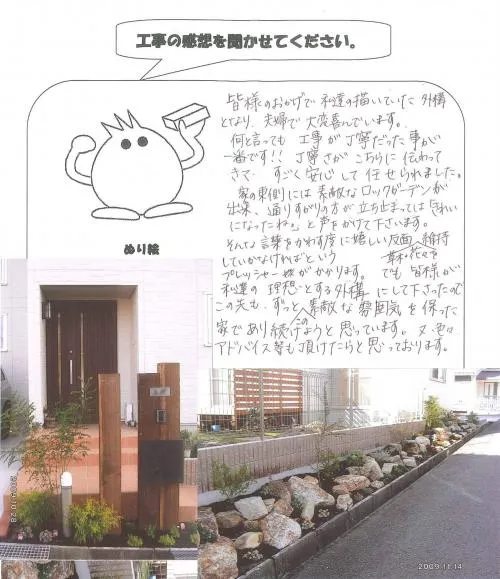 工事の感想を聞かせてください。
皆様のおかげで私達の描いていた外構
となり、夫婦で大変喜んでいます。
何と言っても工事が丁寧だった事が
一番です!! 丁寧さがこちらに伝わって
きて、すごく安心して任せられました。
家の東側には素敵なロックガーデンが
出来、通りすがりの方が立ち止まっては「きれい
になったね。」と声をかけて下さいます。
そんな言葉をかわす度に嬉しい反面、維持
していかなければという
プレッシャーがかかります。でも皆様が
私達の理想とする外構にして下さったので
この先も、ずっと素敵な雰囲気を保った
家であり続けようと思っています。又、色々
アドバイス等も頂けたらと思っております。
ぬり絵
2009.10.28
2009.11.14